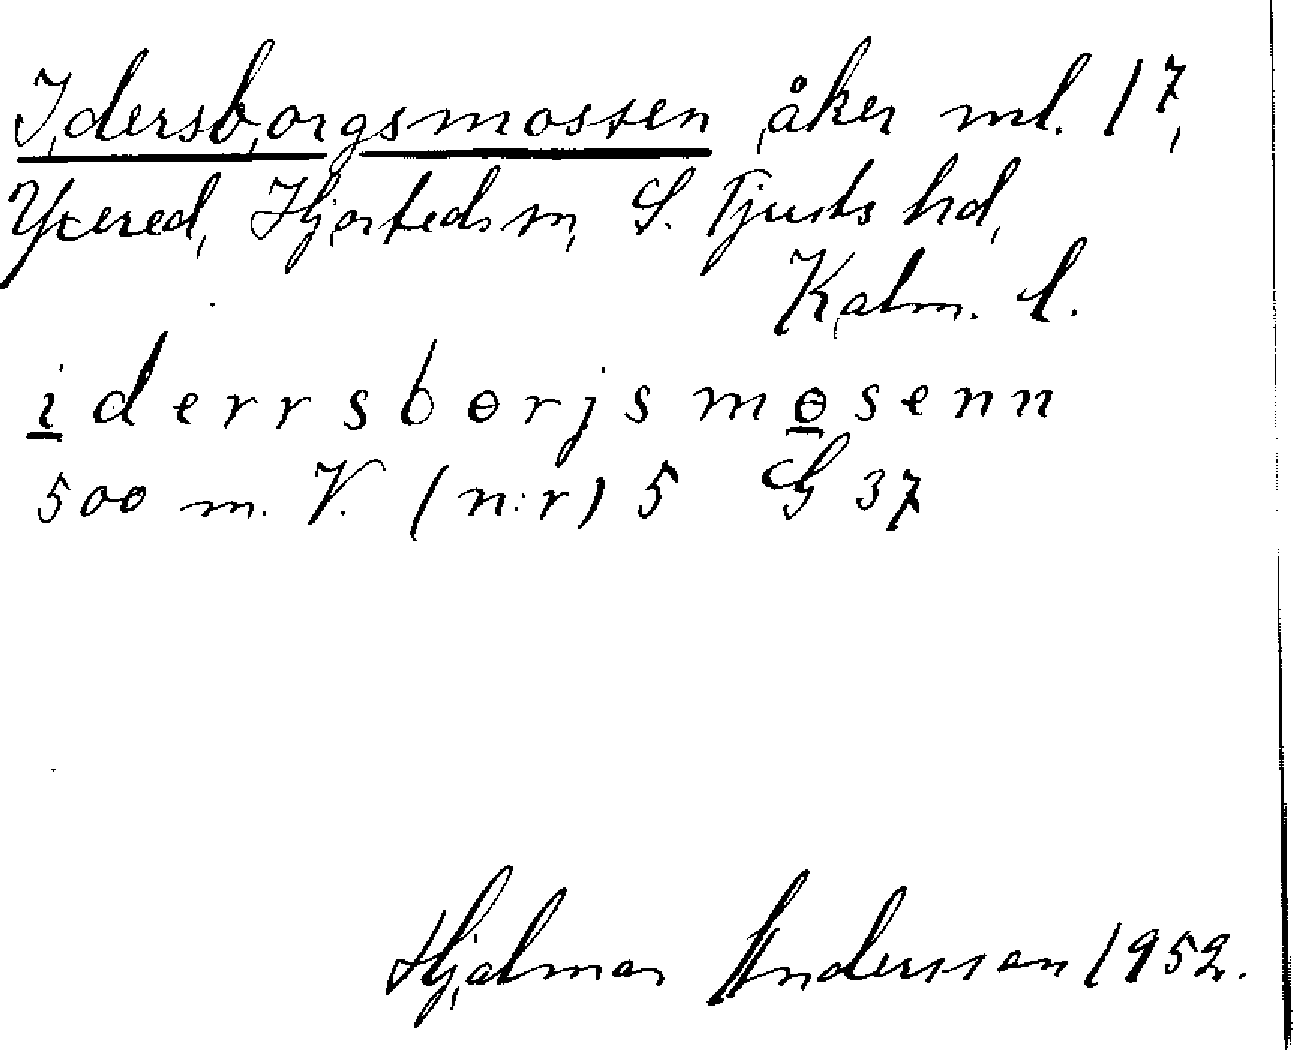 Idersborgsmossen åker ml. 17,
Yxered, Hjorteds sn, S. Tjusts hd,
Kalm. l.
iderrsbɵrjsmɵsenn
500 m. V. (n:r) 5 G 37
Hjalmar Andersson 1952.